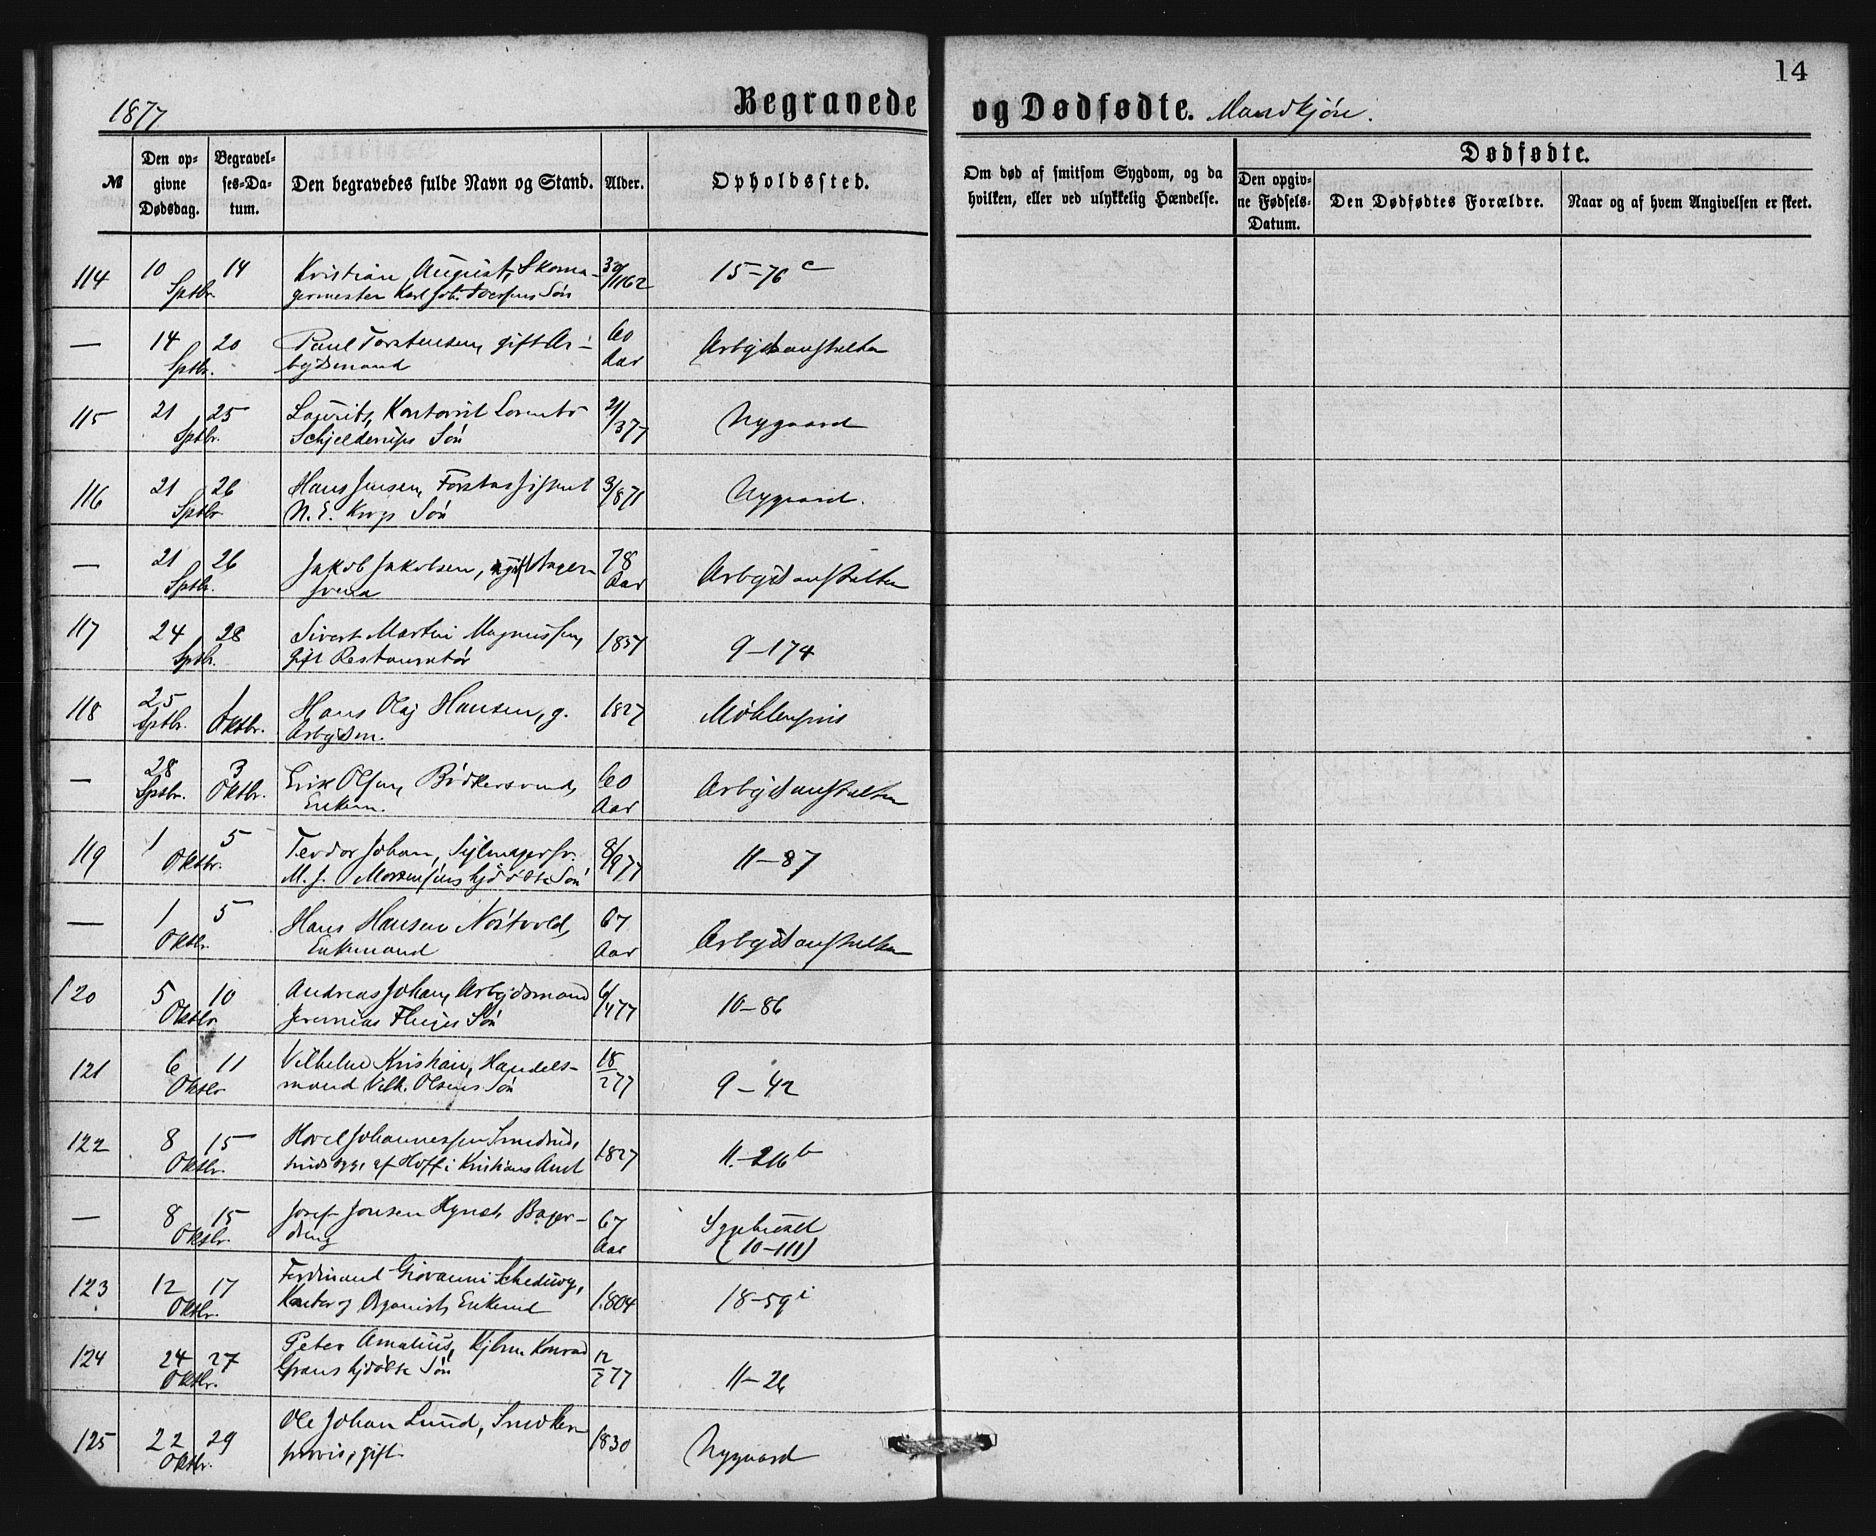 14
1877
Begravede og Dødfødte. Mandkjøn.
№
Den opgivne Dødsdag.
Begravelses-Datum.
Den begravedes fulde Navn og Stand.
Alder.
Opholdssted.
Om død af smitsom Sygdom, og da hvilken, eller ved ulykkelig Hændelse.
Dødfødte.
Den opgivne Fødsels-Datum.
Den Dødfødtes Forældre.
Naar og af hvem Angivelsen er skeet.
114 10 Sptbr. 14 Kristian August, Skoma- 30/11 62 15-76 c
germester Karl Joh. Søn
— 14 Sptbr. 20 Paul Torstensen, gift Ar- 60 Aar Arbejdsanstalten
bejdsmand
115 21 Sptbr. 25 Laurits, Kontorist Lorentz 21/3 77 Nygaard
Schjelderups Søn
116 21 Sptbr. 26 Hans Jensen, Forstassistent 3/8 71 Nygaard.
N. E. Krogs Søn
— 21 Sptbr. 26 Jakob Jakobsen, 78 Aar Arbejdsanstalten
117 24 Sptbr. 28 Sivert Martin Magnussen, 1837 9-174
gift Restauratør
118 25 Sptbr. 1 Oktbr. Hans Olaj Hansen, g. 1827 Møhlenpris
Arbejdsm.
— 28 Sptbr. 3 Oktbr. Erik Olsen, Bødkersvend, 60 Aar Arbejdsanstalten
Enkem.
119 1 Oktbr. 5 Teodor Johan, Sejlmagersv. 8/9 77 11-87
M. J. Mortensens hjdøbte Søn
— 1 Oktbr. 5 Hans Hansen Nostvold, 67 Aar Arbejdsanstalten
Enkemand
120 5 Oktbr 10 Andreas Johan, Arbejdsmand 6/4 77 10-86
Jeremias Søn
121 6 Oktbr 11 Vilhelm Kristian, Handels- 18/2 77 9-42
mand Vilh. Olsens Søn
122 8 Oktbr. 15 Johannessen 1827 11-216 b
af Hoff i Kristians Amt
— 8 Oktbr. 15 Josef Jonsen Bager- 67 Aar Sygehuset
dreng (10-111)
123 12 Oktbr. 17 Ferdinand Giovanni Schediwy, 1804 18-59 i
Kantor og Organist, Enkemd
124 24 Oktbr. 27 Peter Amalius, Kjbm. Konrad 12/7 77 11-26
Grans hjdøbte Søn
125 22 Oktbr. 29 Ole Johan Lund, 1830 Nygaard
gift.